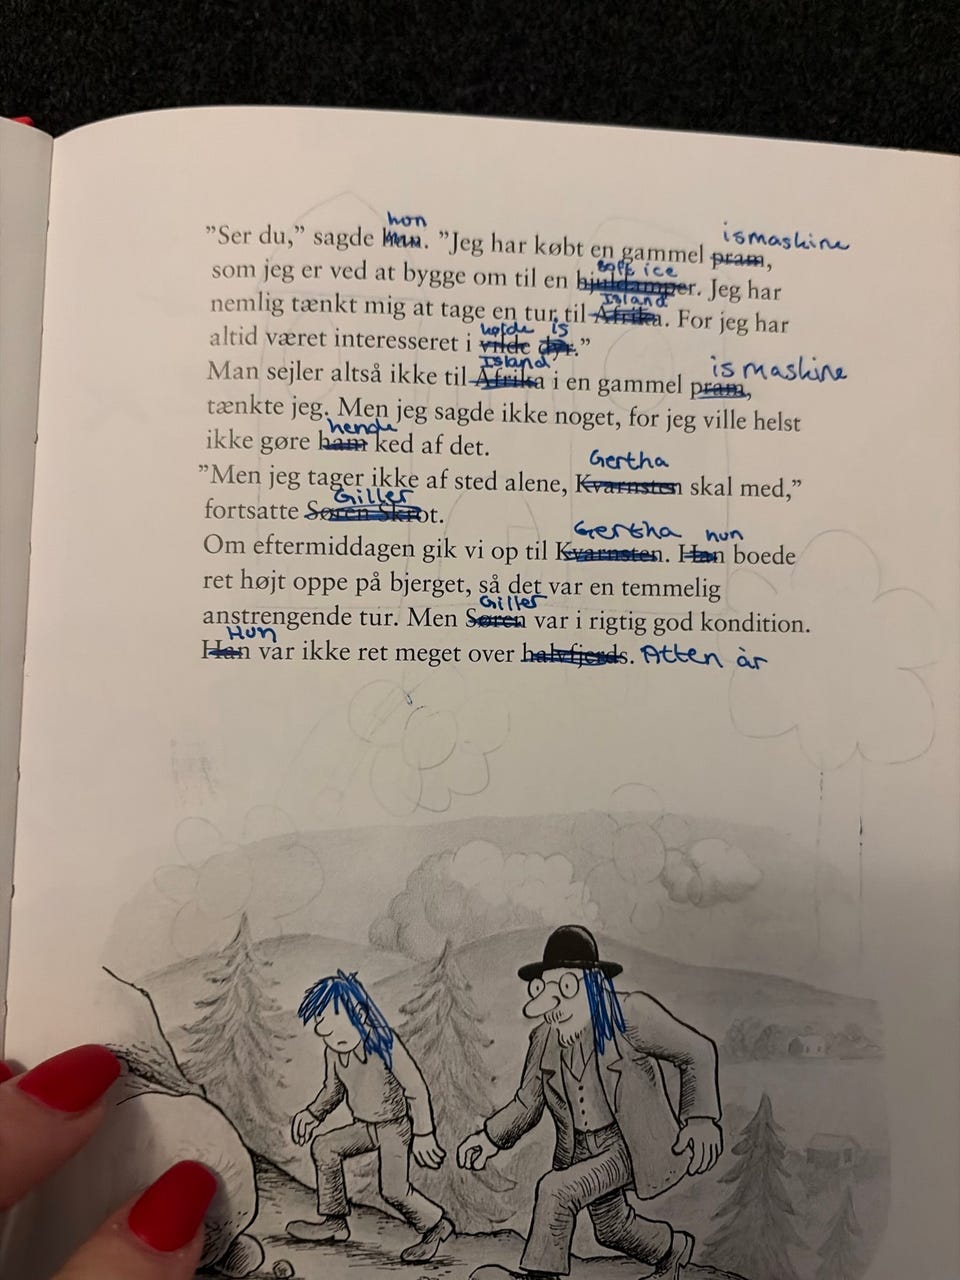 hon
ismaskine
"Ser du," sagde han. "Jeg har købt en gammel pram,
soft ice
som jeg er ved at bygge om til en hjuldamper. Jeg har
Island
nemlig tænkt mig at tage en tur til Afrika. For jeg har
is
altid været interesseret i vilde dyr."
Island
ismaskine
Man sejler altså ikke til Afrika i en gammel pram,
tænkte jeg. Men jeg sagde ikke noget, for jeg ville helst
hende
ikke gøre ham ked af det.
Gertha
"Men jeg tager ikke af sted alene, Kvarnsten skal med,"
Giller
fortsatte Søren Skrot.
Gertha hun
Om eftermiddagen gik vi op til Kvarnsten. Han boede
ret højt oppe på bjerget, så det var en temmelig
Giller
anstrengende tur. Men Søren var i rigtig god kondition.
Hun
Han var ikke ret meget over halvfjerds. Atten år